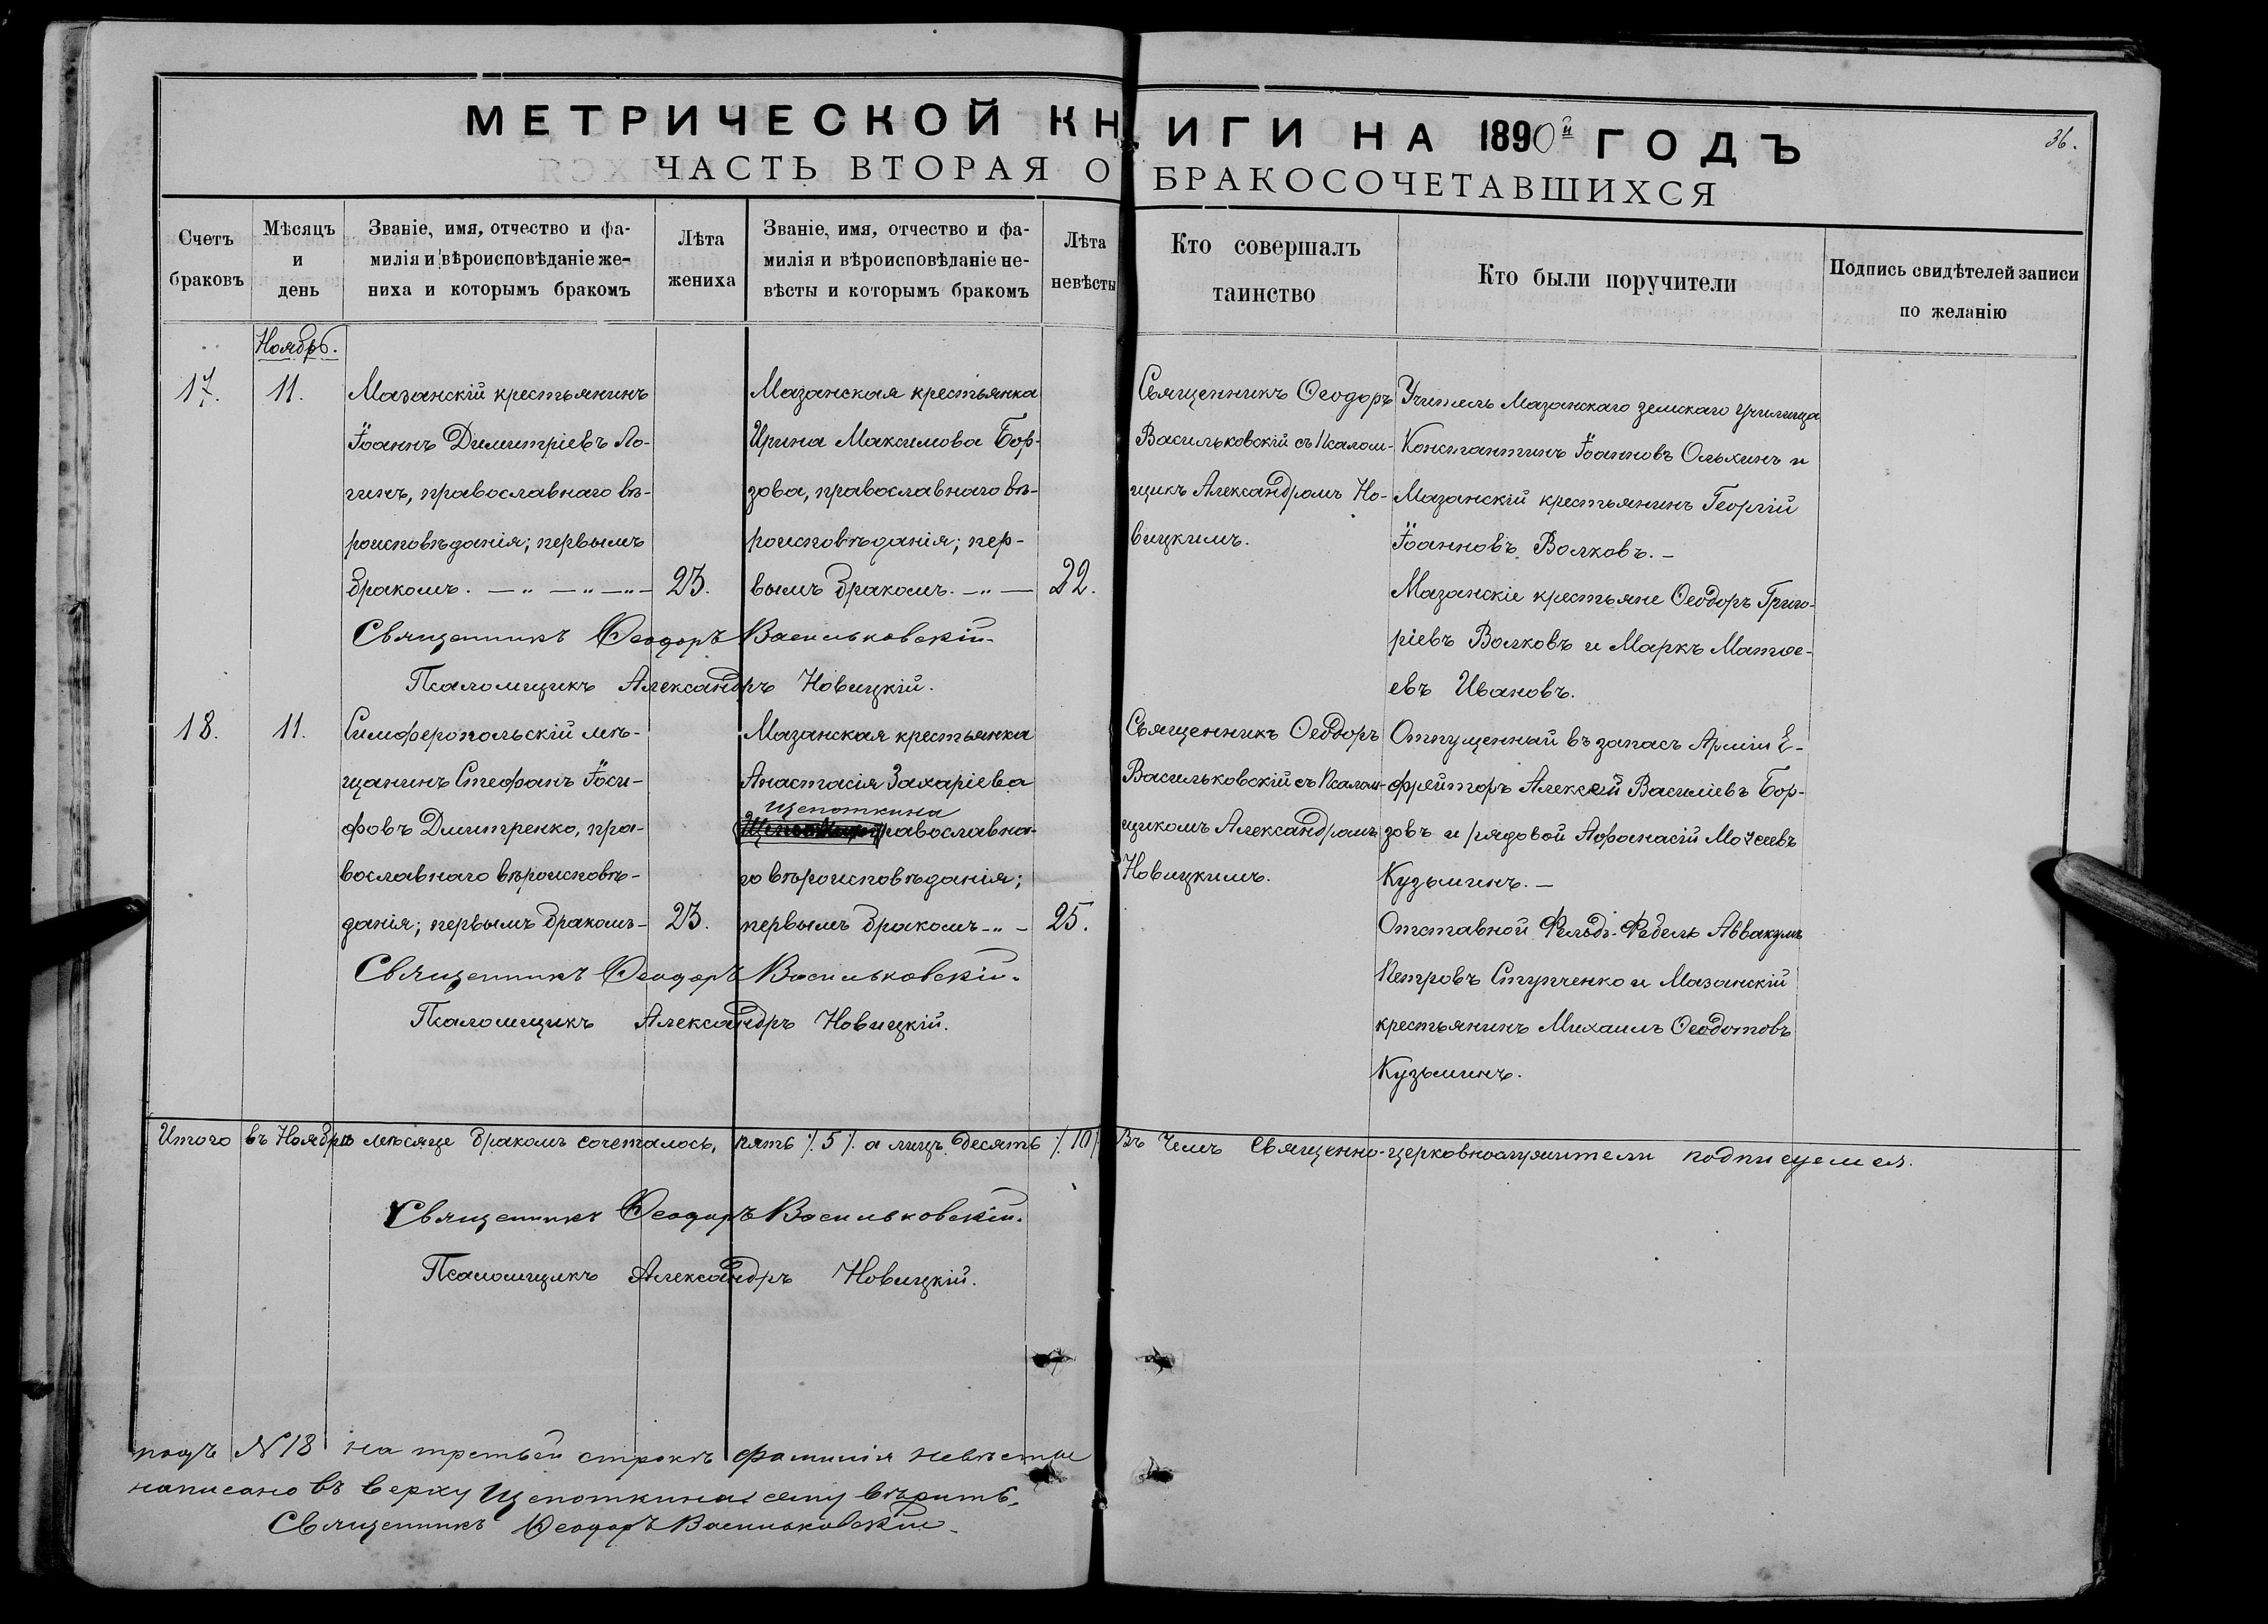 МЕТРИЧЕСКОЙ КНИГИ НА 1890й ГОДЪ
36.
ЧАСТЬ ВТОРАЯ О БРАКОСОЧЕТАВШИХСЯ
Счетъ
браковъ
Мѣсяцъ
и
день
Званіе, имя, отчество и фа-
милія и вѣроисповѣданіе же-
ниха и которымъ бракомъ
Лѣта
жениха
Званіе, имя, отчество и фа-
милія и вѣроисповѣданіе не-
вѣсты и которымъ бракомъ
Лѣта
невѣсты
Кто совершалъ
таинство
Кто были поручители
Подпись свидѣтелей записи
по желанію
Ноябрь.
17.
11.
Мазанскій крестьянинъ
Іоаннъ Димитріевъ Ло-
гинъ, православнаго вѣ-
роисповѣданія; первымъ
бракомъ. — „ — „ — „ —
23.
Мазанская крестьянка
Ирина Максимова Бор-
зова, православнаго вѣ-
роисповѣданія; пер-
вымъ бракомъ. — „ —
22.
Священникъ Ѳеодоръ
Васильковскій съ Псалом-
щикъ Александромъ Но-
вицкимъ.
Учитель Мазанскаго земскаго училища
Константинъ Іоанновъ Ольхинъ и
Мазанскій крестьянинъ Георгій
Іоанновъ Волковъ. —
Мазанскіе крестьяне Ѳеодоръ Григо-
ріевъ Волковъ и Маркъ Матѳе-
евъ Ивановъ.
Священникъ Ѳеодоръ Васильковскій.
Псаломщикъ Александръ Новицкій.
18.
11.
Симферопольскій мѣ-
щанинъ Стефанъ Іоси-
фовъ Дмитренко, пра-
вославнаго вѣроисповѣ-
данія; первымъ бракомъ —
23.
Мазанская крестьянка
Анастасія Захаріева
Щепоткина
православна-
го вѣроисповѣданія;
первымъ бракомъ — „ —
25.
Священникъ Ѳеодоръ
Васильковскій съ Псалом-
щикомъ Александромъ
Новицкимъ.
Отпущенный въ запасъ Арміи Е-
фрейторъ Алексѣй Василіевъ Бор-
зовъ и рядовой Аѳанасій Моѵсеевъ
Кузьминъ. —
Отставной Фельдъ-Фебель Аввакумъ
Петровъ Ступченко и Мазанскій
крестьянинъ Михаилъ Ѳеодотовъ
Кузьминъ.
Священникъ Ѳеодоръ Васильковскій.
Псаломщикъ Александръ Новицкій.
Итого въ Ноябрѣ мѣсяце бракомъ сочеталось, пять /. 5 /. а лицъ десять /. 10 /. Въ чемъ Священно-церковнослужители подписуемся.
Священникъ Ѳеодоръ Васильковскій.
Псаломщикъ Александръ Новицкій.
подъ № 18 на третьей строкѣ фамилія невѣсты
написано въ верху Щепоткина сему вѣрить.
Священникъ Ѳеодоръ Васильковскій.